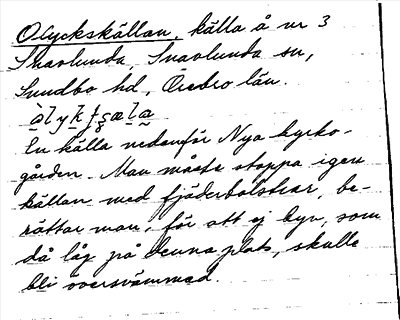 Olyckskällan, källa å nr 3
Snavlunda, Snavlunda sn,
Sundbo hd, Örebro län.
En källa nedanför Nya kyrko-
gården. Man måste stoppa igen
källan med fjäderbolstrar, be-
rättar man, för att ej byn, som
då låg på denna plats, skulle
bli översvämmad.